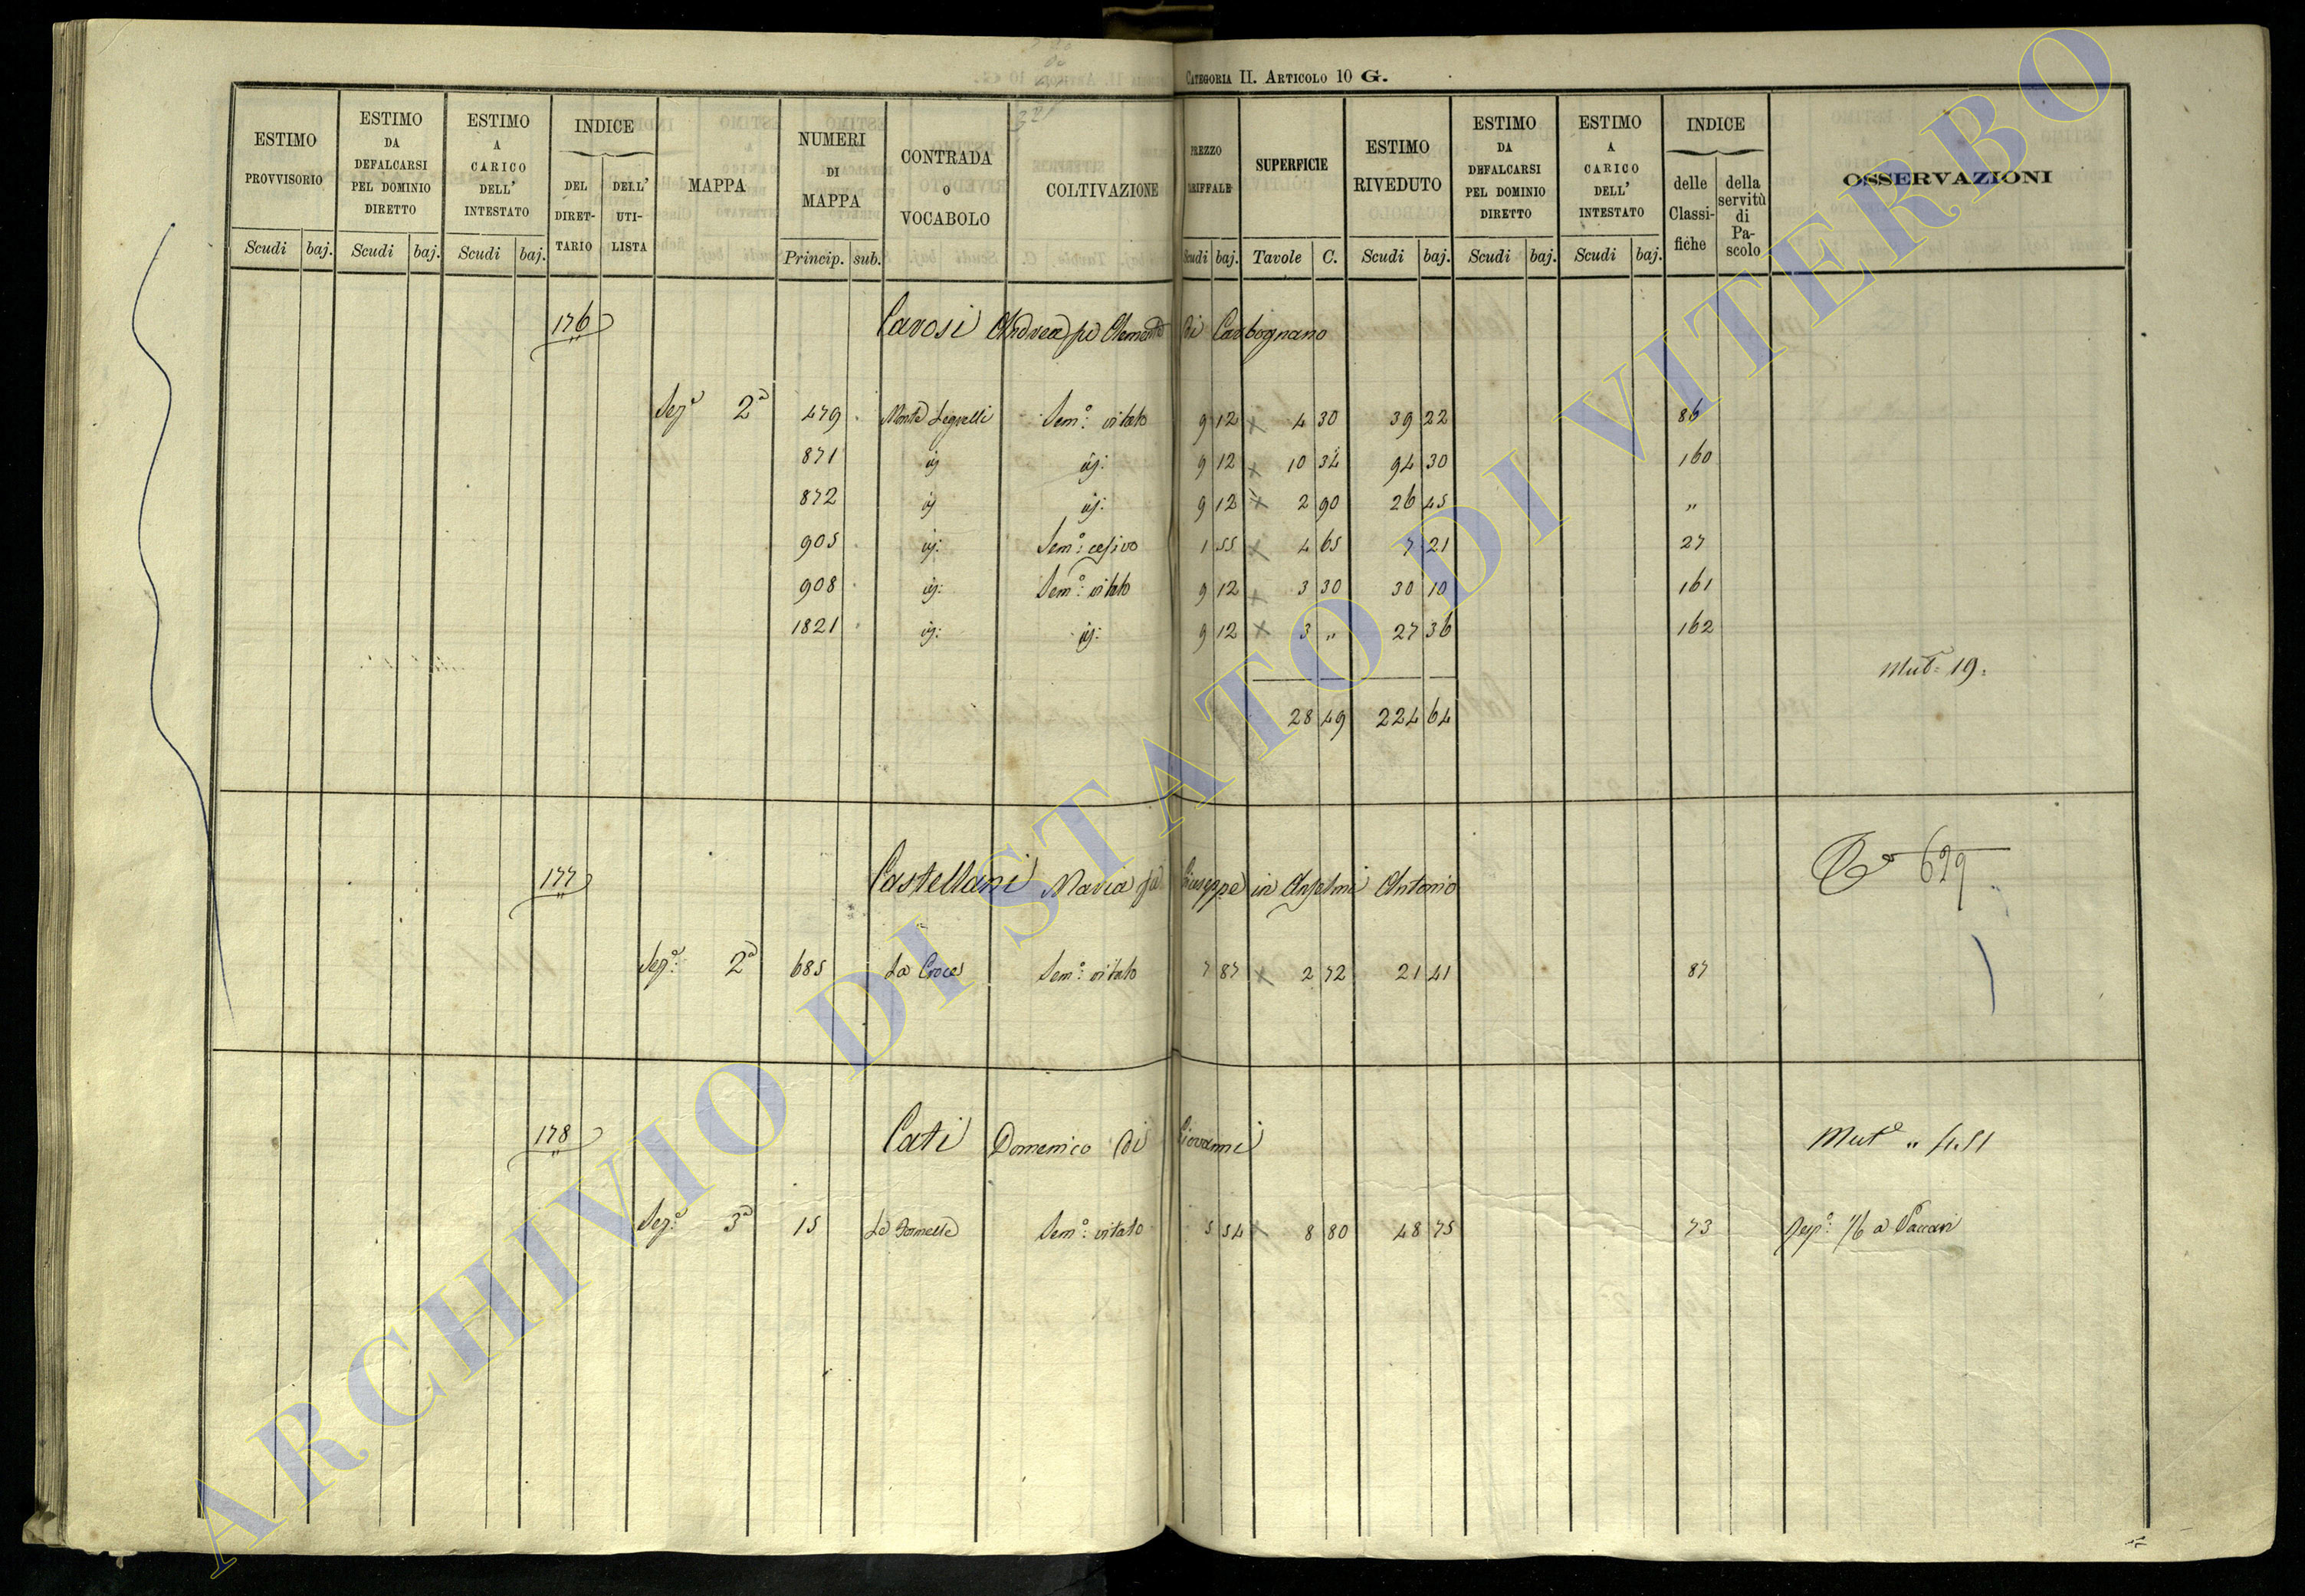 CATEGORIA II. ARTICOLO 10 G.
ESTIMO PROVVISORIO
ESTIMO DA DEFALCARSI PEL DOMINIO DIRETTO
ESTIMO A CARICO DELL' INTESTATO
INDICE
DEL DIRETTARIO
DELL' UTILISTA
MAPPA
NUMERI DI MAPPA
CONTRADA O VOCABOLO
COLTIVAZIONE
PREZZO
SUPERFICIE
ESTIMO RIVEDUTO
ESTIMO DA DEFALCARSI PEL DOMINIO DIRETTO
ESTIMO A CARICO DELL' INTESTATO
INDICE
delle Classifiche
della servitù di Pascolo
OSSERVAZIONI
Scudi baj. Scudi baj. Scudi baj. Princip. sub. Scudi baj. Tavole C. Scudi baj. Scudi baj. Scudi baj.
176 Carosi Andrea fu Clemente di Carbognano
Sezᵉ 2ª 479 Monte Sem.º vitato 9 12 4 30 39 22 86
871 id 9 12 10 34 94 30 160
872 id 9 12 2 90 26 45 "
905 id: Sem.º cesivo 1 55 4 65 7 21 27
908 id: Sem.º vitato 9 12 3 30 30 10 161
1821 id: id: 9 12 3 " 27 36 162
Mutª 19
28 49 224 64
177 Castellani Maria fu Giuseppe in Anselmi Antonio 629
Sezᵉ 2ª 685 La Croce Sem.º vitato 7 87 2 72 21 41 87
178 Cati Domenico di Giovanni Mutª " 451
Sezᵉ 3ª 15 Sem.º vitato 5 54 8 80 48 75 73
ARCHIVIO DI STATO DI VITERBO